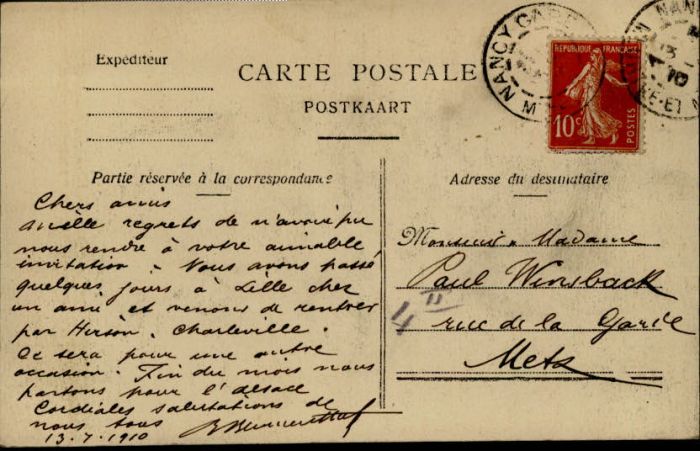 Expéditeur
CARTE POSTALE
POSTKAART
NANCY GARE
REPUBLIQUE FRANÇAISE
10c POSTES
Partie réservée à la correspondance
Chers amis
Mille regrets de n'avoir pu
nous rendre à votre aimable
invitation. Nous avons passé
quelques jours à Lille chez
un ami et venons de rentrer
par Hirson, Charleville.
Ce sera pour une autre
occasion. Fin du mois nous
partons pour l'alsace
Cordiales salutations de
nous tous
13.7.1910
Adresse du destinataire
Monsieur Madame
Paul Winsback
4 II
rue de la Garde
Metz